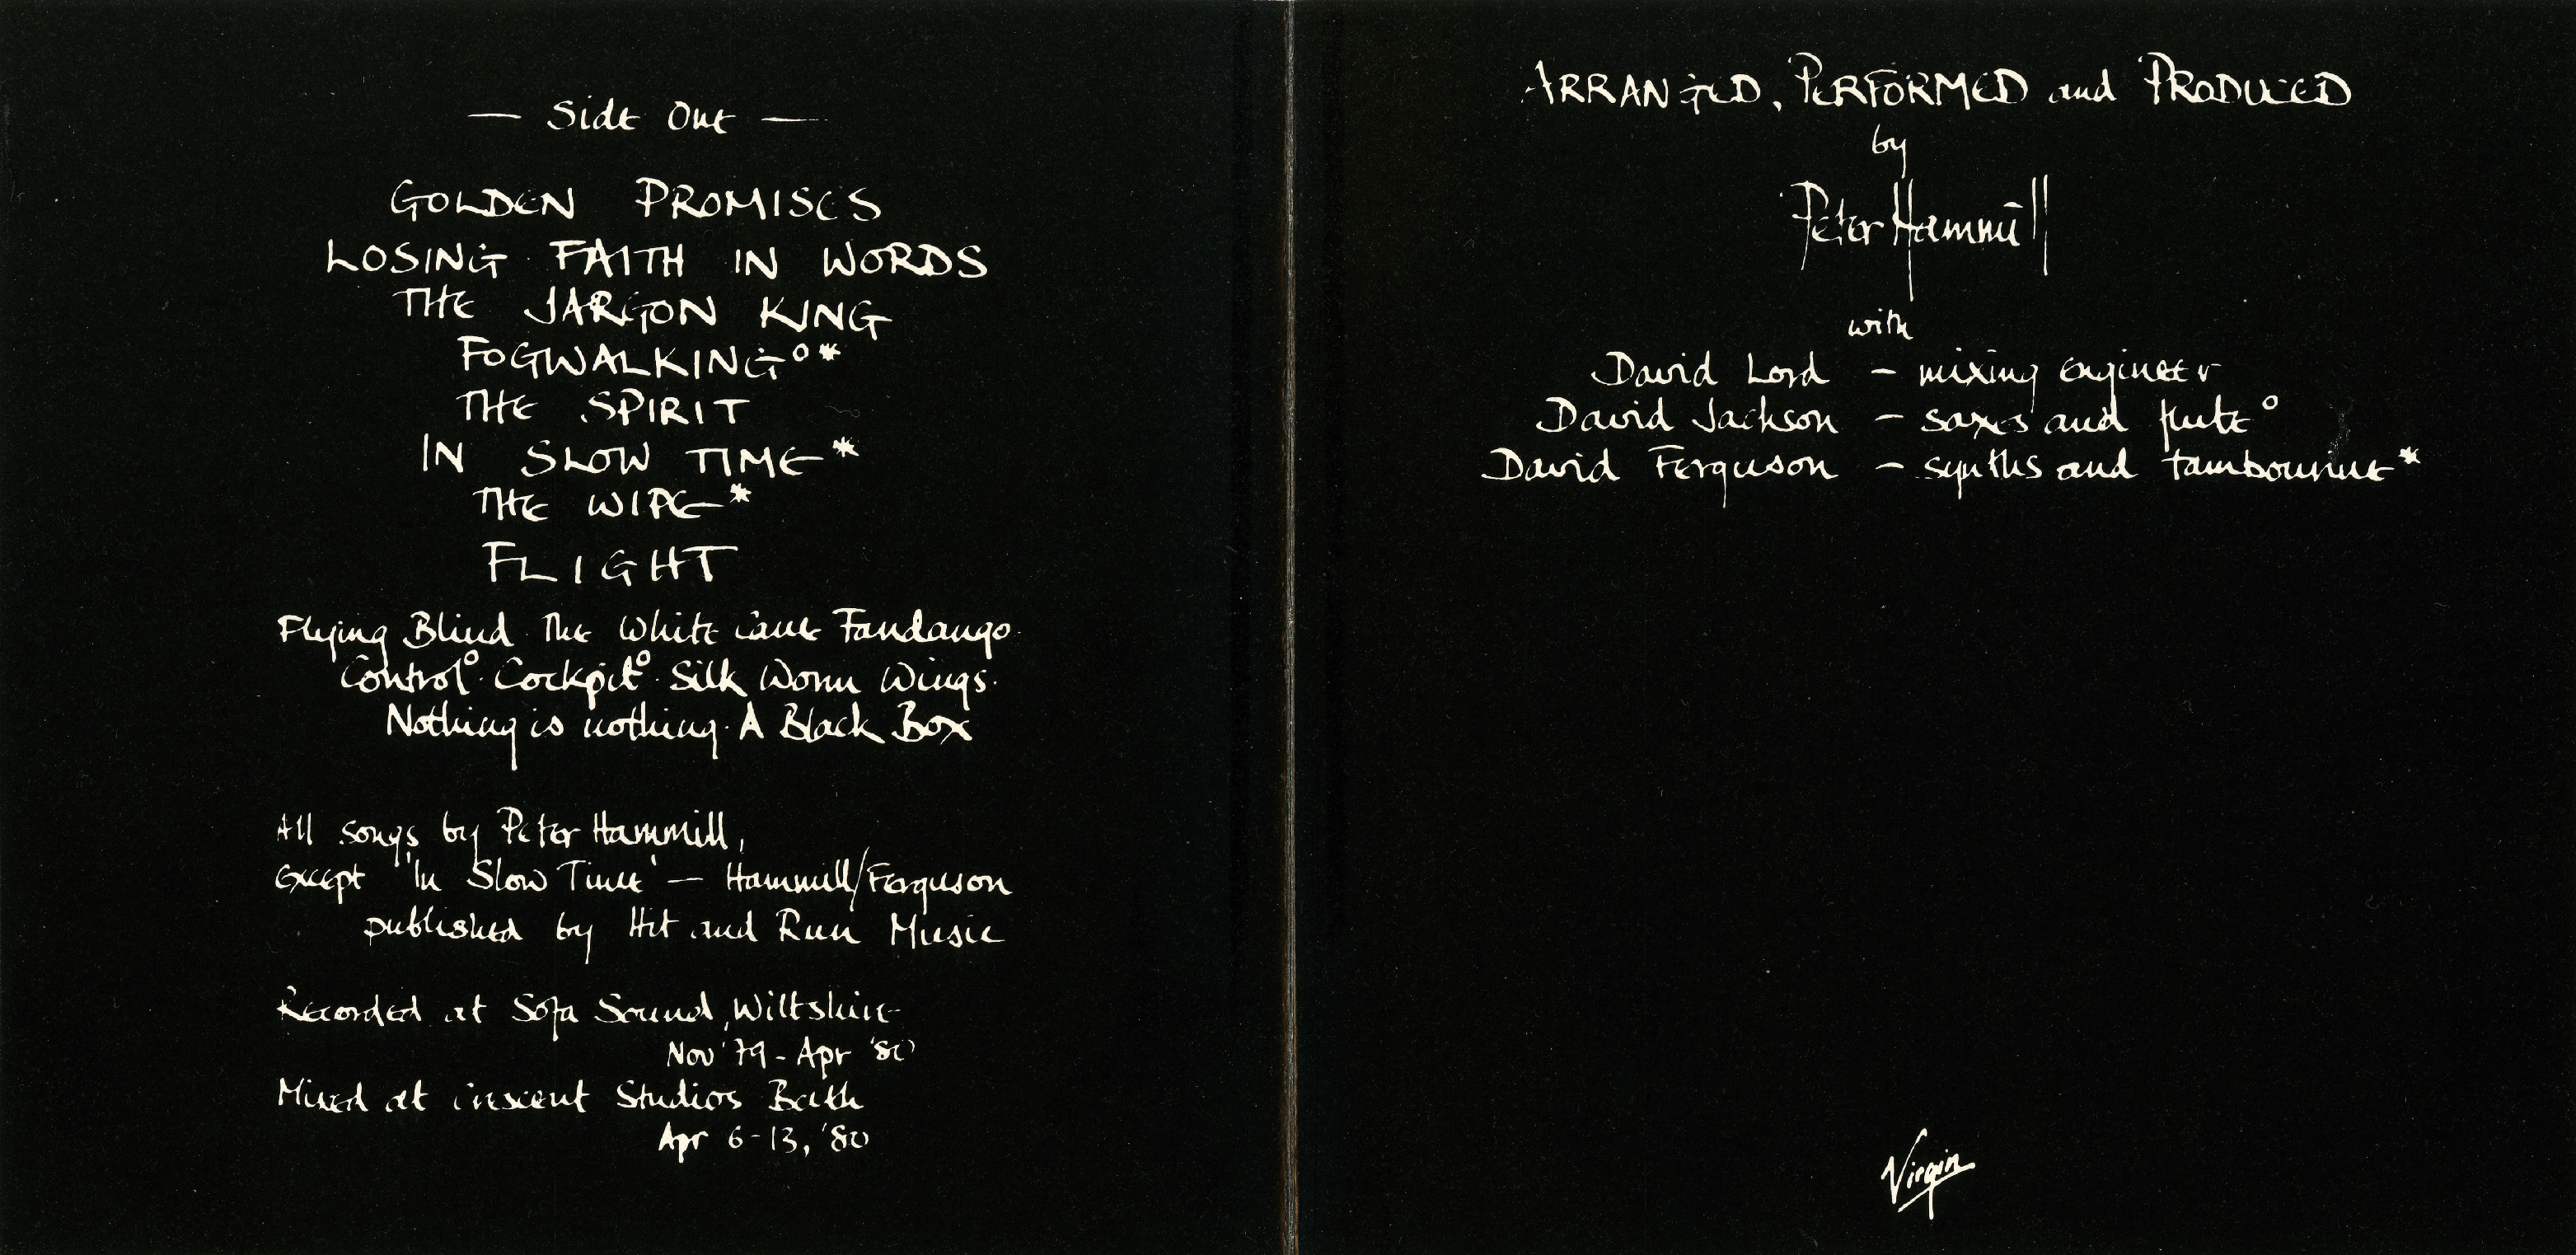 — Side One —
GOLDEN PROMISES
LOSING FAITH IN WORDS
THE JARGON KING
FOGWALKING°*
THE SPIRIT
IN SLOW TIME*
THE WIPE*
FLIGHT
Flying Blind · The White Cane Fandango ·
Control° · Cockpit° · Silk Worm Wings ·
Nothing is nothing · A Black Box
All songs by Peter Hammill,
except 'In Slow Time' — Hammill/Ferguson
published by Hit and Run Music
Recorded at Sofa Sound, Wiltshire
Nov '79 - Apr '80
Mixed at Crescent Studios Bath
Apr 6-13, '80
ARRANGED, PERFORMED and PRODUCED
by
Peter Hammill
with
David Lord – mixing engineer
David Jackson – saxes and flute°
David Ferguson – synths and tambourine*
Virgin